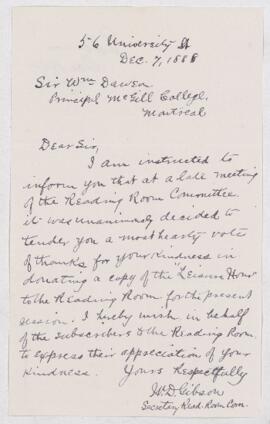 56 University St
Dec. 7, 1888
Sir Wm Dawson
Principal McGill College,
Montreal
Dear Sir,
I am instructed to
inform you that at a late meeting
of the Reading Room Committee
it was unanimously decided to
tender you a most hearty vote
of thanks for your kindness in
donating a copy of the "Leisure Hour"
to the Reading Room for the present
session. I hereby wish in behalf
of the subscribers to the Reading Room
to express their appreciation of your
kindness. Yours Respectfully
W.D. Gibson
Secretary Read. Room Com.